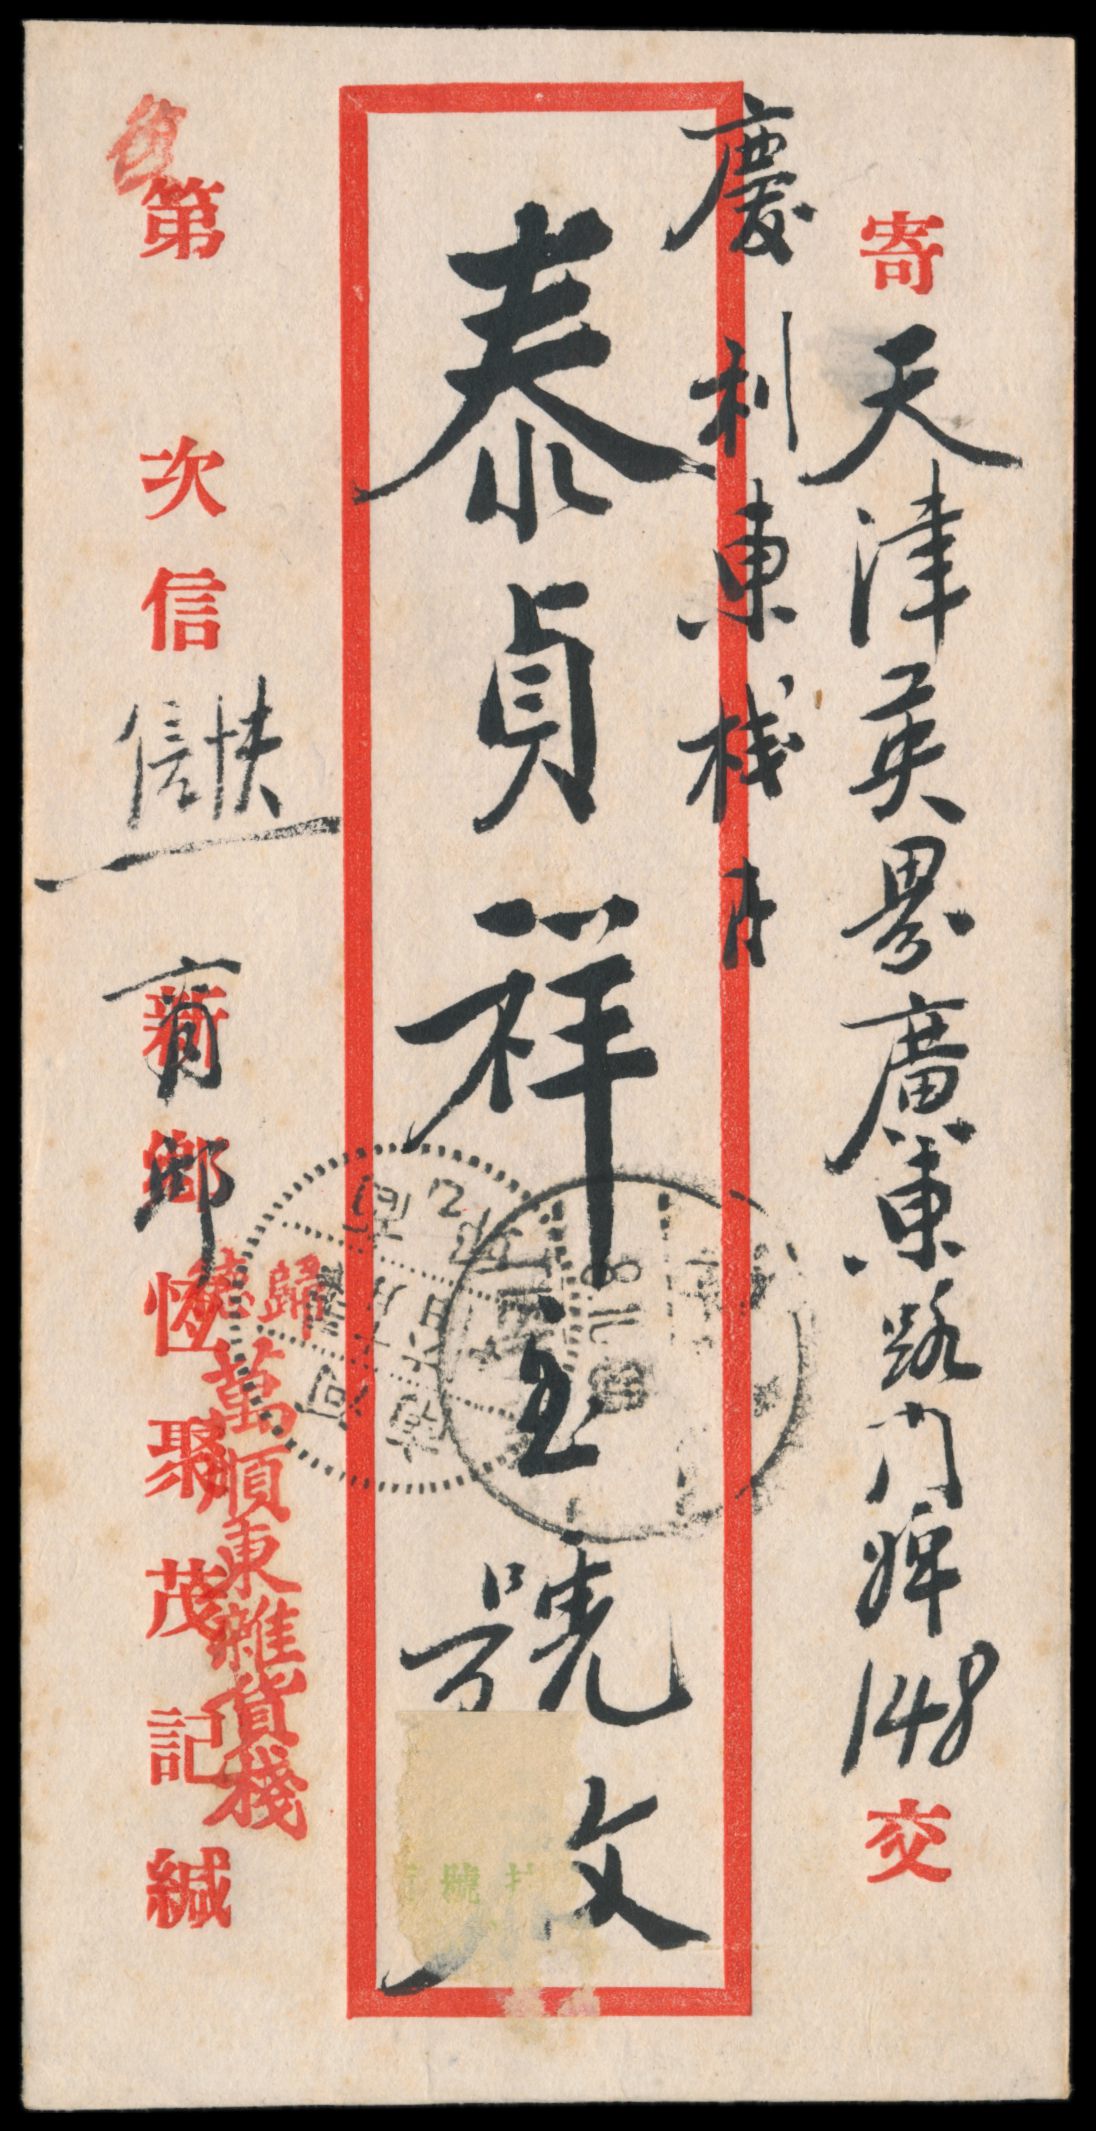 寄天津英界廣東路门牌148交
慶利東棧内
泰貞祥宝號文
歸德
萬順東雜貨棧
第次信
快信
新鄉恆聚茂記緘
商邱